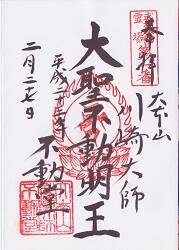 奉拝
大本山
川崎大師
大聖不動明王
平成二十三年
不動堂
二月二十七日